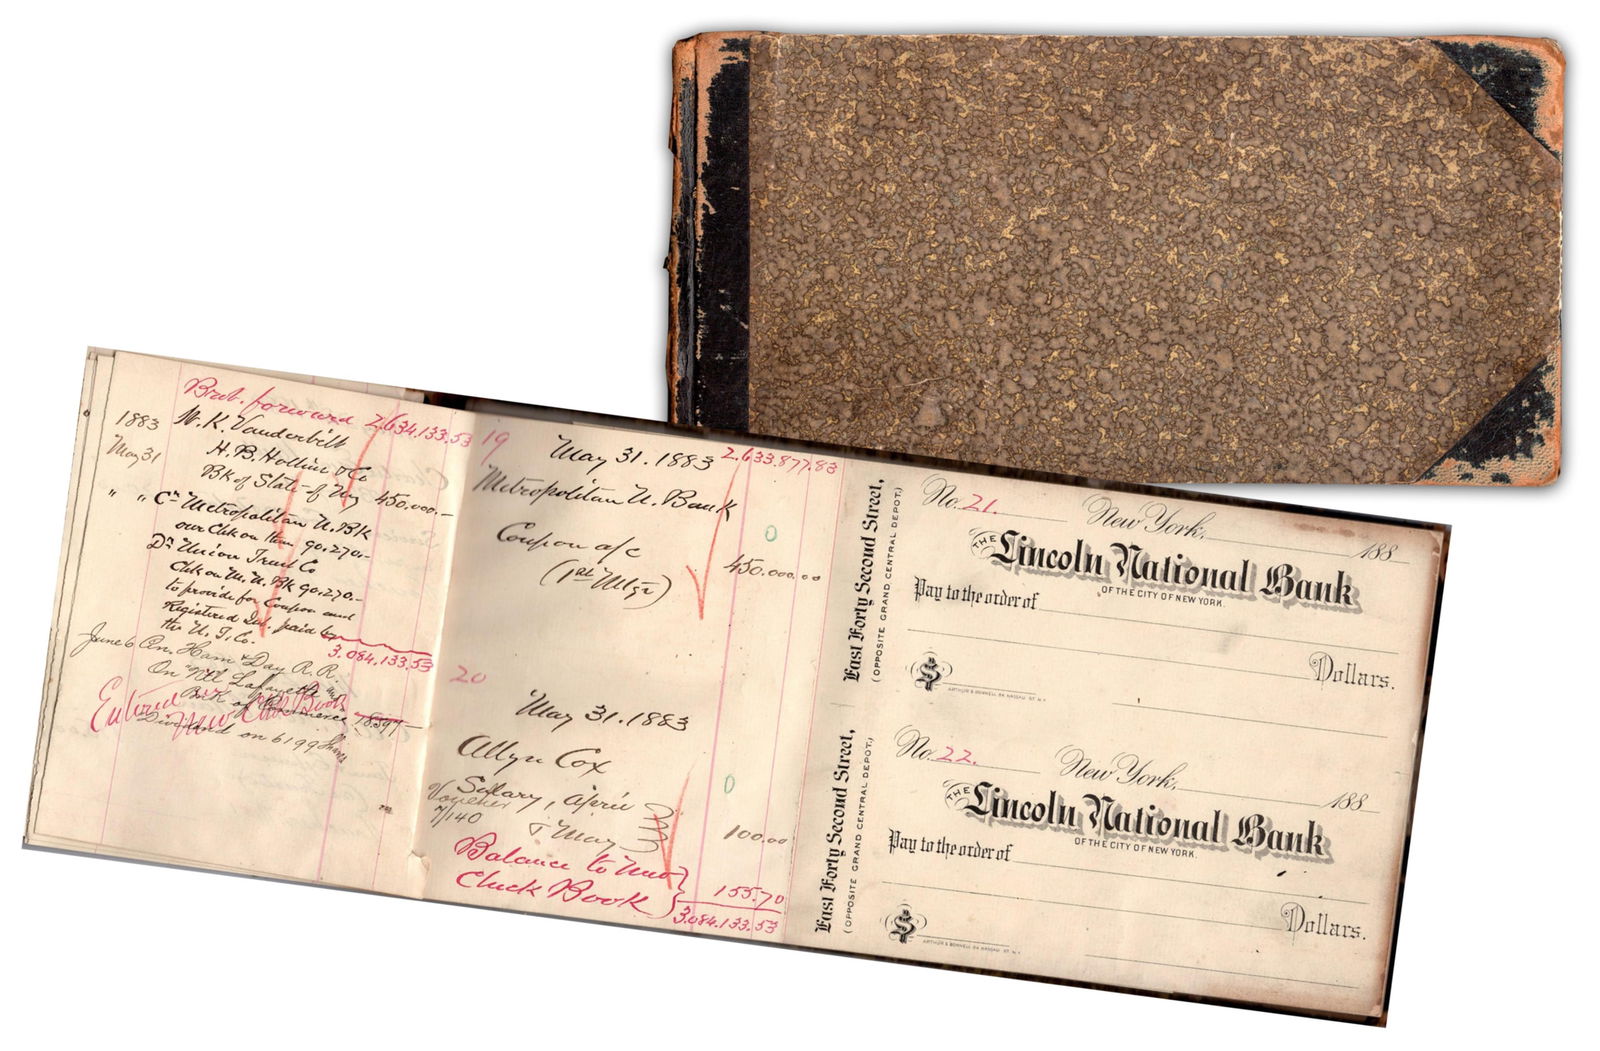 Brot. forward 2.634.133.53
1883 W. K. Vanderbilt
May 31 H. B. Hollins & Co
Bk of State of N.Y. 450.000.—
" " Cr Metropolitan N. Bk
our Chk on them 90.270.—
Dr Union Trust Co
Chk on M. N. Bk 90.270.—
to provide for Coupon and
Registered Int. paid by
the U. T. Co.
3.084.133.53
June 6 Cin. Ham & Day R.R.
On Ntl Lafayette and
Bk of Commerce
Dividend on 6199 Shares
Entered in
New Check Book
19
May 31. 1883 2.633.877.83
Metropolitan N. Bank
0
Coupon a/c
(1st Mtge) 450.000.00
20
May 31. 1883
Allyn Cox
0
Salary, April
Voucher
7/140
& May 100.00
Balance to New
Check Book 155.70
3.084.133.53
East Forty Second Street,
(OPPOSITE GRAND CENTRAL DEPOT.)
No. 21. New York, 188
THE Lincoln National Bank
OF THE CITY OF NEW YORK.
Pay to the order of
Dollars.
$
ARTHUR & BONNELL 64 NASSAU ST. N.Y.
East Forty Second Street,
(OPPOSITE GRAND CENTRAL DEPOT.)
No. 22. New York, 188
THE Lincoln National Bank
OF THE CITY OF NEW YORK.
Pay to the order of
Dollars.
$
ARTHUR & BONNELL 64 NASSAU ST. N.Y.